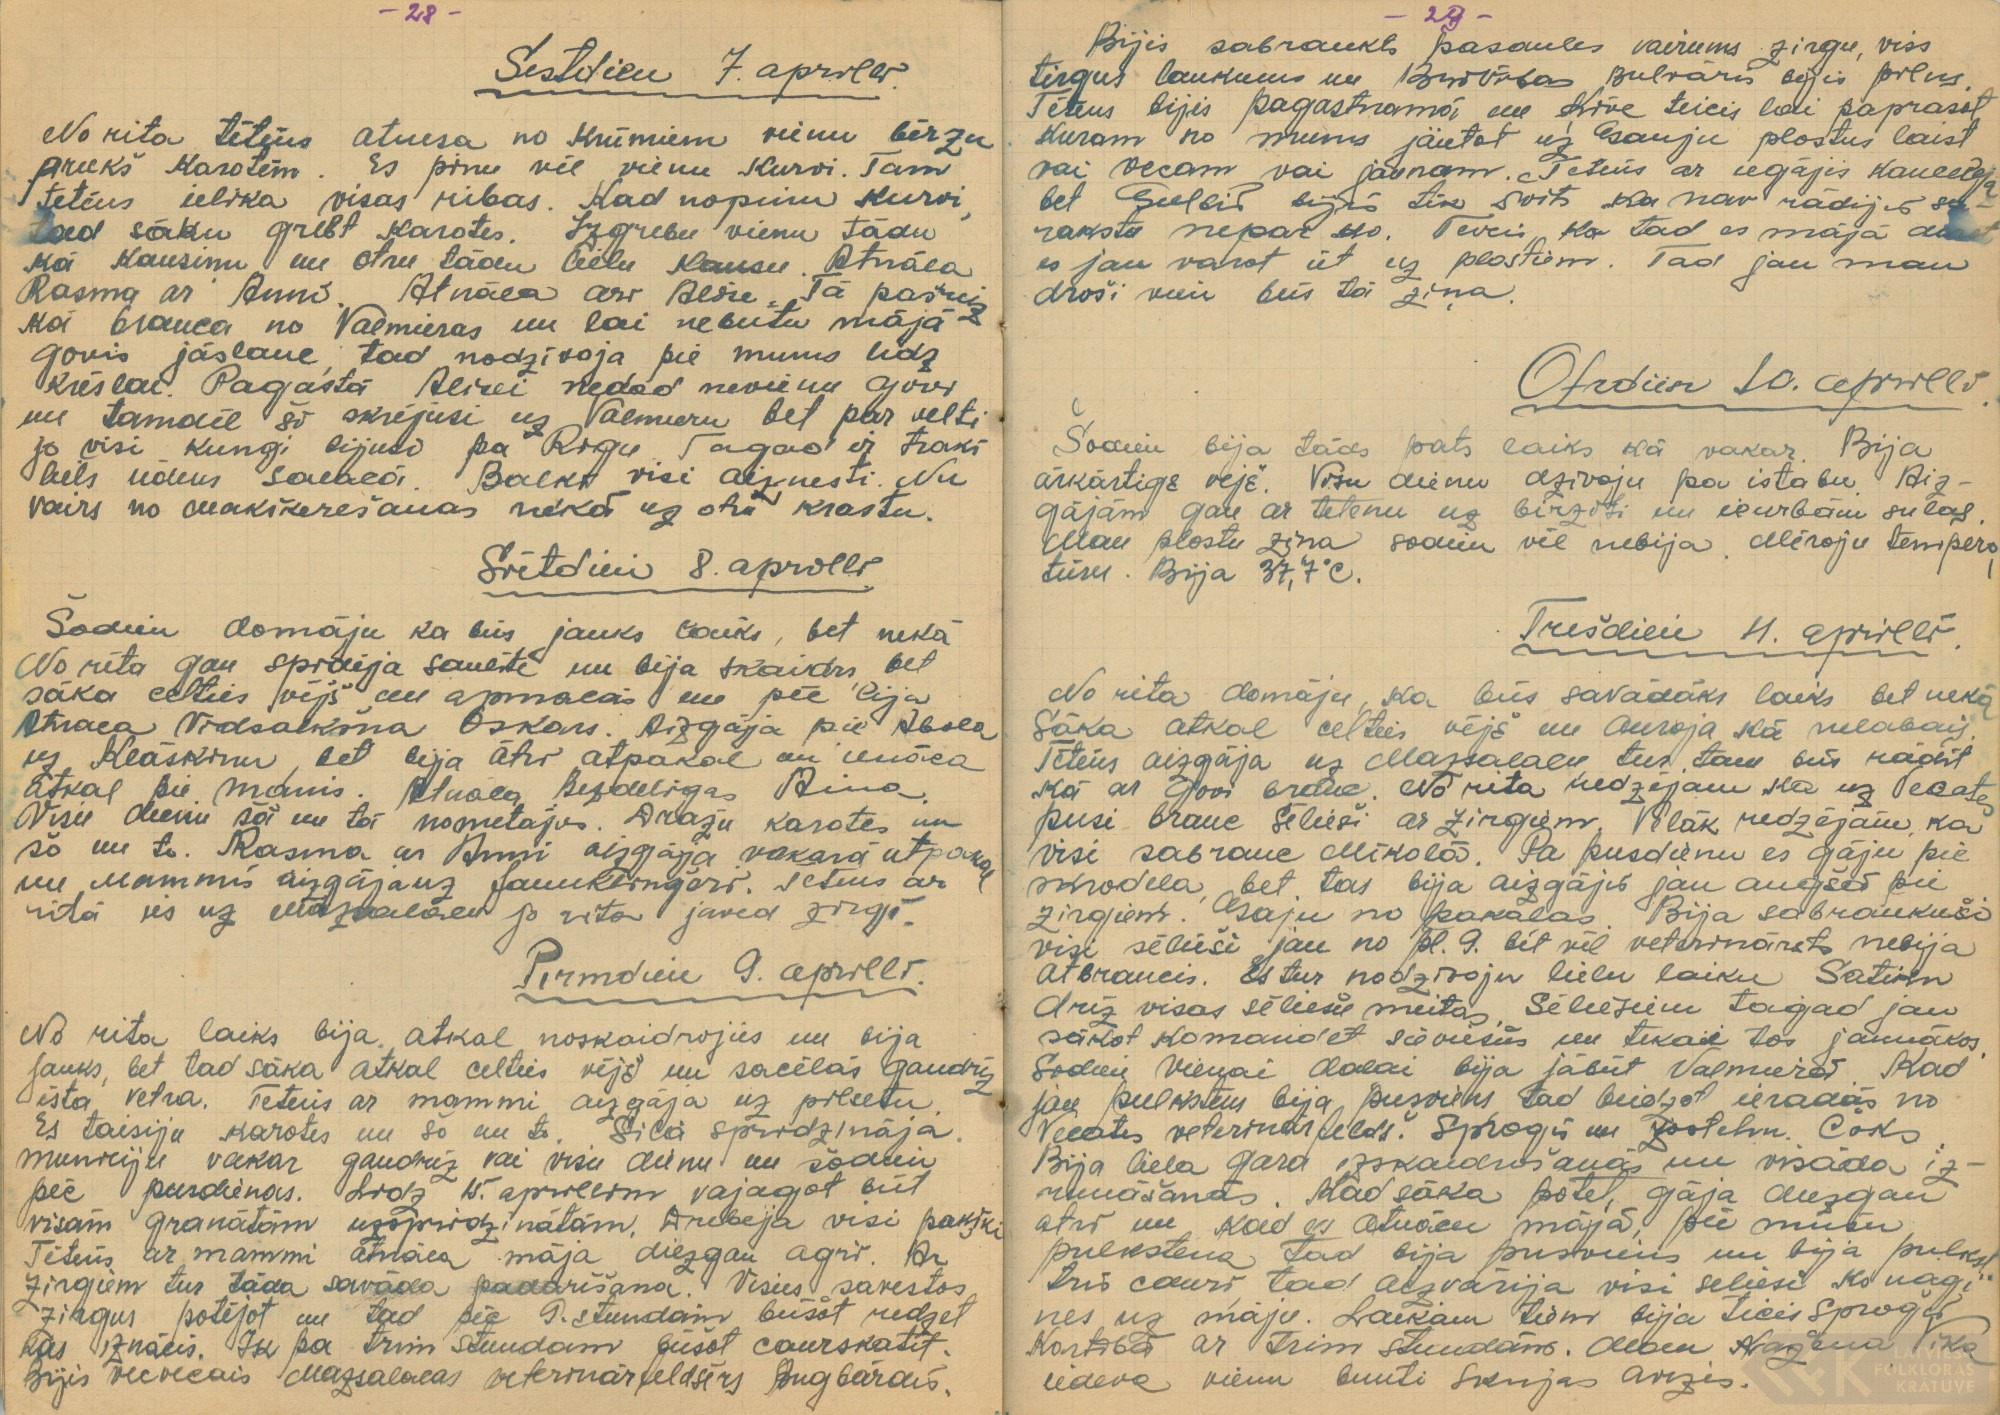 - 28 -
Sestdien 7. aprīlī.
No rīta tētiņš atnesa no krūmiem vienu bērzu
priekš karotēm. Es pinu vēl vienu kurvi. Tam
tētiņš ielika visas ribas. Kad nopinu kurvi,
tad sāku grebt karotes. Izgrebu vienu tādu
kā kausiņu un otru tādu lielu kausu. Atnāca
Rasma ar Anni. Atnāca arī Alise. Tā pašreiz
kā brauca no Valmieras un lai nebūtu mājā
govis jāslauc, tad nodzīvoja pie mums līdz
krēslai. Pagastā Alisei nedod nevienu govi
un tamdēļ šī skrējusi uz Valmieru bet par velti
jo visi kungi bijuši pa Rīgu. Tagad ir traki
liels ūdens Salacā. Baļķi visi aiznesti. Nu
vairs no makšķerēšanas nekā uz otru krastu.
Svētdien 8. aprīlī
Šodien domāju ka būs jauks laiks, bet nekā
No rīta gan spīdēja saulīte un bija skaidrs, bet
sāka celties vējš un apmācās un pie lija
Atnāca Vidsalkšņa Oskars. Aizgāja pie Ābola
uz Kļaskinu bet bija ātri atpakaļ un ienāca
atkal pie manis. Atnāca Bezdelīgas Aina.
Visu dienu šā un tā nometājos. Drāžu karotes un
šo un to. Rasma ar Anni aizgāja vakarā atpakaļ
un mammīs aizgāja uz Jaunklingeri. Tētiņš ar
rītā ies uz Mazsalacu jo rītā javed zirgi.
Pirmdien 9. aprīlī.
No rīta laiks bija atkal noskaidrojies un bija
jauks, bet tad sāka atkal celties vējš un sacēlās gandrīz
īsta vētra. Tētiņš ar mammi aizgāja uz pilsētu.
Es taisīju karotes un šo un to. Silā sprīdzināja
munīciju vakar gandrīz vai visu dienu un šodien
pēc pusdienas. Līdz 15. aprīlim vajagot būt
visām granātām uzsprīdzinātām. Drebēja visi pakški
Tētiņš ar mammi atnāca mājā diezgan agri. Ar
zirgiem tur tāda savāda padarīšana. Visus savestos
zirgus potējot un tad pēc 9. stundām būšot redzēt
kas iznācis. Ik pa trim stundām būšot caurskatīt.
Bijis vecvecais Mazsalacas veterinārfeldšērs Bugbārdis.
- 29 -
Bijis sabraukts pasaules vairums zirgu, viss
tirgus laukums un Brīvības Bulvāris bijis pilns.
Tētiņš bijis pagastnamā, un Ķire teicis lai paprasot
kuram no mums jāietot uz Gauju plostus laist
vai vecam vai jaunam. Tētiņš ar iegājis kancelejā
bet Gulbis bijis tik svīts ka nav rādījis sa-
rakstu nepar ko. Teicis, ka tad es mājā
es jau varot iet uz plostiem. Tad jau man
droši vien būs tā ziņa.
Otrdien 10. aprīlī.
Šodien bija tāds pats laiks kā vakar. Bija
ārkārtīgs vējš. Visu dienu dzīvoju pa istabu. Aiz-
gājām gan ar tētēnu uz bērziņi un ieurbām sulas.
Man plostu ziņa šodien vēl nebija. Mēroju tempera-
tūru. Bija 37,7°C.
Trešdien 11. aprīlī.
No rīta domāju, ka būs savādāks laiks bet nekā
Sāka atkal celties vējš un auroja kā nelabais.
Tētiņš aizgāja uz Mazsalacu tur tam būs rādīt
kā ar govi brauc. No rīta redzējam ka uz Vecates
pusi brauc sēlieši ar zirgiem. Vēlāk redzējām, ka
visi sabrauc Mikolā. Pa pusdienu es gāju pie
skrodeļa, bet tas bija aizgājis jau augšā pie
zirgiem. Gāju no pakaļas. Bija sabraukuši
visi sēlieši jau no pl. 9. bet vēl veterinārsts nebija
atbraucis. Es tur nodzīvoju lielu laiku. Satiku
drīz visas sēliešu meitas. Sēliešiem tagad jau
sākot komandēt sieviešus un tikai tos jaunākos.
Šodien vienai daļai bija jābūt Valmierā. Kad
jau pulkstens bija pusviens tad beidzot ieradās no
Vecates veterinārfeldš. Sproģis un zootehn. Cāks.
Bija liela gara izskaidrošanās un visāda iz-
runāšanās. Kad sāka potēt, gāja diezgan
ātri un kad es atnācu mājā, pēc mūsu
pulkstena tad bija pusviens un bija pulkst.
trīs cauri, tad aizvārīja visi sēlieši ko nagi
nes uz māju. Laikam tiem bija ticis Sproģa
Kārtībā ar trim stundām. Man Kažena Vika
iedeva vienu bunti Skujas avīzes.
LATVIEŠU
FOLKLORAS
KRĀTUVE